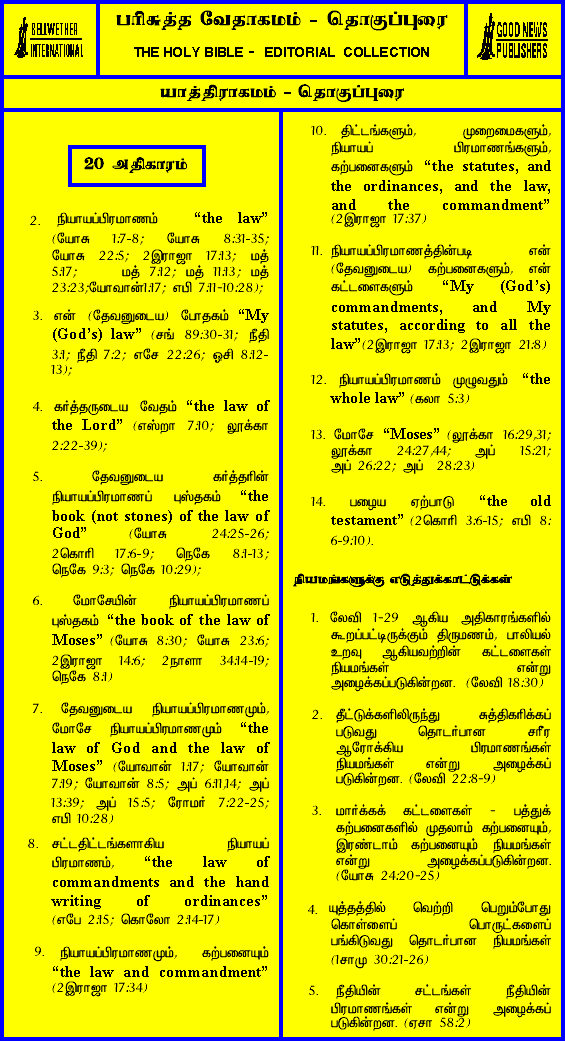 BELLWETHER
INTERNATIONAL
பரிசுத்த வேதாகமம் - தொகுப்புரை
THE HOLY BIBLE - EDITORIAL COLLECTION
GOOD NEWS
PUBLISHERS
யாத்திராகமம் - தொகுப்புரை
20 அதிகாரம்
2. நியாயப்பிரமாணம் “the law”
(யோசு 1:7-8; யோசு 8:31-35;
யோசு 22:5; 2இராஜா 17:13; மத்
5:17; மத் 7:12; மத் 11:13; மத்
23:23;யோவான்1:17; எபி 7:11-10:28);
3. என் (தேவனுடைய) போதகம் “My
(God’s) law” (சங் 89:30-31; நீதி
3:1; நீதி 7:2; எசே 22:26; ஓசி 8:12-
13);
4. கர்த்தருடைய வேதம் “the law of
the Lord” (எஸ்றா 7:10; லூக்கா
2:22-39);
5. தேவனுடைய கர்த்தரின்
நியாயப்பிரமாணப் புஸ்தகம் “the
book (not stones) of the law of
God” (யோசு 24:25-26;
2கொரி 17:6-9; நெகே 8:1-13;
நெகே 9:3; நெகே 10:29);
6. மோசேயின் நியாயப்பிரமாணப்
புஸ்தகம் “the book of the law of
Moses” (யோசு 8:30; யோசு 23:6;
2இராஜா 14:6; 2நாளா 34:14-19;
நெகே 8:1)
7. தேவனுடைய நியாயப்பிரமாணமும்,
மோசே நியாயப்பிரமாணமும் “the
law of God and the law of
Moses” (யோவான் 1:17; யோவான்
7:19; யோவான் 8:5; அப் 6:11,14; அப்
13:39; அப் 15:5; ரோமர் 7:22-25;
எபி 10:28)
8. சட்டதிட்டங்களாகிய நியாயப்
பிரமாணம், “the law of
commandments and the hand
writing of ordinances”
(எபே 2:15; கொலோ 2:14-17)
9. நியாயப்பிரமாணமும், கற்பனையும்
“the law and commandment”
(2இராஜா 17:34)
10. திட்டங்களும், முறைமைகளும்,
நியாயப் பிரமாணங்களும்,
கற்பனைகளும் “the statutes, and
the ordinances, and the law,
and the commandment”
(2இராஜா 17:37)
11. நியாயப்பிரமாணத்தின்படி என்
(தேவனுடைய) கற்பனைகளும், என்
கட்டளைகளும் “My (God’s)
commandments, and My
statutes, according to all the
law”(2இராஜா 17:13; 2இராஜா 21:8)
12. நியாயப்பிரமாணம் முழுவதும் “the
whole law” (கலா 5:3)
13. மோசே “Moses” (லூக்கா 16:29,31;
லூக்கா 24:27,44; அப் 15:21;
அப் 26:22; அப் 28:23)
14. பழைய ஏற்பாடு “the old
testament” (2கொரி 3:6-15; எபி 8:
6-9:10).
நியமங்களுக்கு எடுத்துக்காட்டுக்கள்
1. லேவி 1-29 ஆகிய அதிகாரங்களில்
கூறப்பட்டிருக்கும் திருமணம், பாலியல்
உறவு ஆகியவற்றின் கட்டளைகள்
நியமங்கள் என்று
அழைக்கப்படுகின்றன. (லேவி 18:30)
2. தீட்டுக்களிலிருந்து சுத்திகரிக்கப்
படுவது தொடர்பான சரீர
ஆரோக்கிய பிரமாணங்கள்
நியமங்கள் என்று அழைக்கப்
படுகின்றன. (லேவி 22:8-9)
3. மார்க்கக் கட்டளைகள் - பத்துக்
கற்பனைகளில் முதலாம் கற்பனையும்,
இரண்டாம் கற்பனையும் நியமங்கள்
என்று அழைக்கப்படுகின்றன.
(யோசு 24:20-25)
4. யுத்தத்தில் வெற்றி பெறும்போது
கொள்ளைப் பொருட்களைப்
பங்கிடுவது தொடர்பான நியமங்கள்
(1சாமு 30:21-26)
5. நீதியின் சட்டங்கள் நீதியின்
பிரமாணங்கள் என்று அழைக்கப்
படுகின்றன. (ஏசா 58:2)